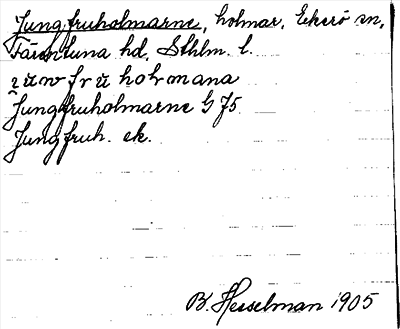 Jungfruholmarne, holmar, Ekerö sn,
Färentuna hd, Sthlm. l.
Jungfruholmarne G 75.
Jungfruh. ek.
B. Hesselman 1905